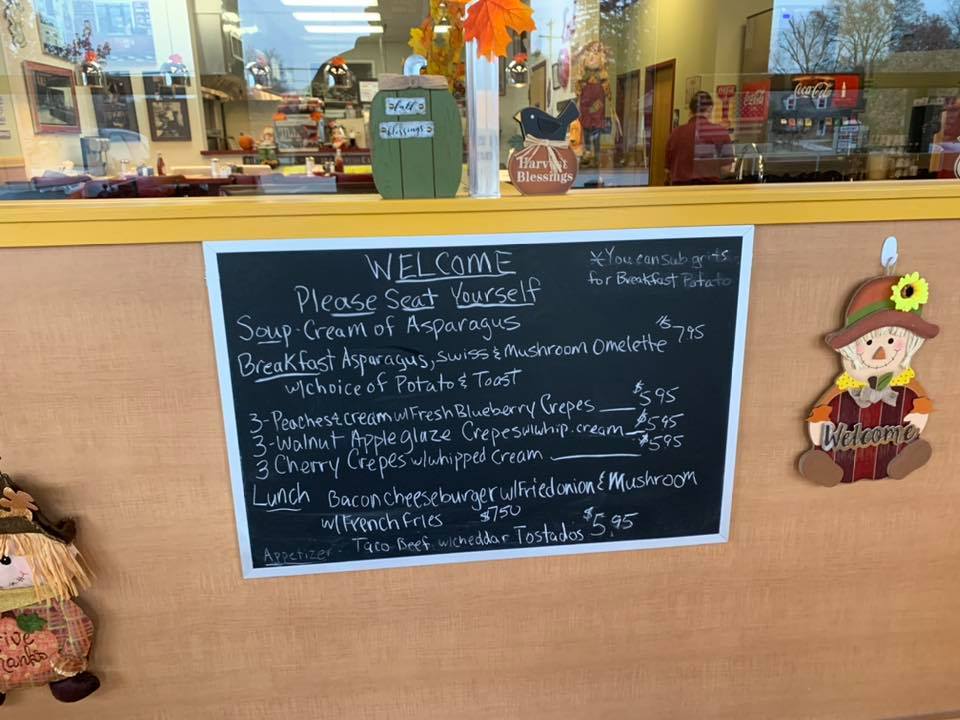 fall
blessings
Harvest
Blessings
Coca-Cola
WELCOME
Please Seat Yourself
*You can sub grits
for Breakfast Potato
Soup-Cream of Asparagus
Breakfast Asparagus, swiss & Mushroom Omelette $7.95
w/choice of Potato & Toast
3-Peaches & cream w/Fresh Blueberry Crepes $5.95
3-Walnut Apple glaze Crepes w/whip. cream $5.95
3 Cherry Crepes w/whipped Cream $5.95
Lunch Bacon cheeseburger w/Fried onion & Mushroom
w/French fries $7.50
Appetizer - Taco Beef w/cheddar Tostados $5.95
Welcome
Give
Thanks